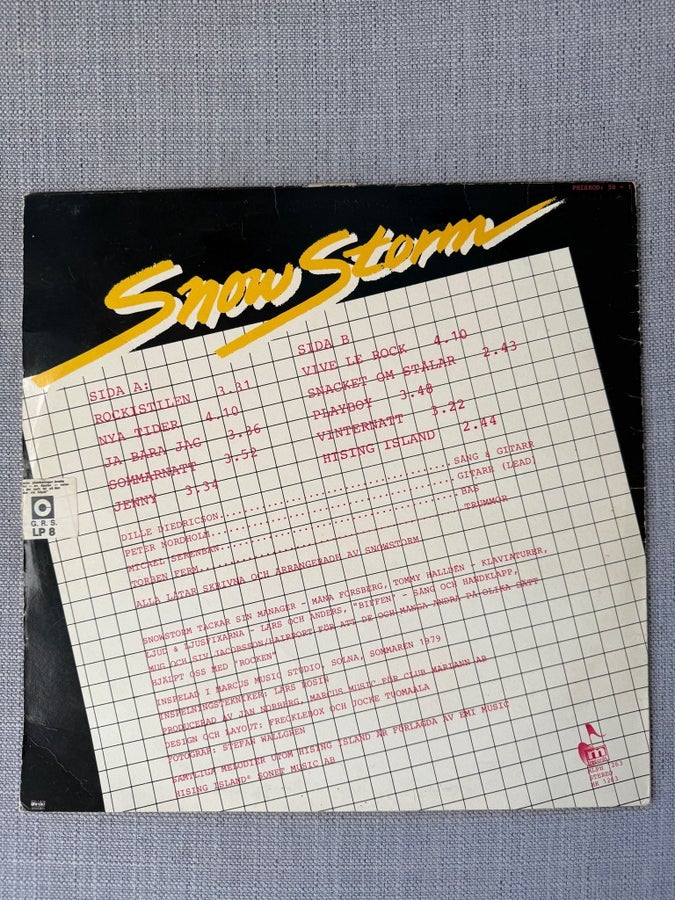 PRISKOD: 50 - 1
Snowstorm
SIDA A:
ROCKISTILEN 3.31
NYA TIDER 4.10
JA BARA JAG 3.26
SOMMARNATT 3.52
JENNY 3.34
SIDA B
VIVE LE ROCK 4.10
SNACKET OM STALAR 2.43
PLAYBOY 3.48
VINTERNATT 3.22
HISING ISLAND 2.44
DILLE DIEDRICSON SANG & GITARR
PETER NORDHOLM GITARR (LEAD)
MICAEL SERENBAN BAS
TORBEN FERM TRUMMOR
ALLA LÅTAR SKRIVNA OCH ARRANGERADE AV SNOWSTORM
SNOWSTORM TACKAR SIN MANAGER - MANA FORSBERG, TOMMY HALLDÉN - KLAVIATURER,
LJUD & LJUSFIXARNA - LARS OCH ANDERS, "BIFFEN" - SANG OCH HANDKLAPP,
MUG OCH SIV JACOBSSON/HAIRPORT FÖR ATT DE OCH MÅNGA ANDRA PÅ OLIKA SÄTT
HJÄLPT OSS MED "ROCKEN"
INSPELAD I MARCUS MUSIC STUDIO, SOLNA, SOMMAREN 1979
INSPELNINGSTEKNIKER: LARS ROSIN
PRODUCERAD AV JAN NORBERG, MARCUS MUSIC FÖR CLUB MARIANN AB
DESIGN OCH LAYOUT: FRECKLEBOX OCH JOCKE TUOMAALA
FOTOGRAF: STEFAN WALLGREN
SAMTLIGA MELODIER UTOM HISING ISLAND ÄR FÖRLAGDA AV EMI MUSIC
HISING ISLAND° SONET MUSIC AB
C
G. R. S.
LP 8
MLPH 1263
STEREO
MK 1263